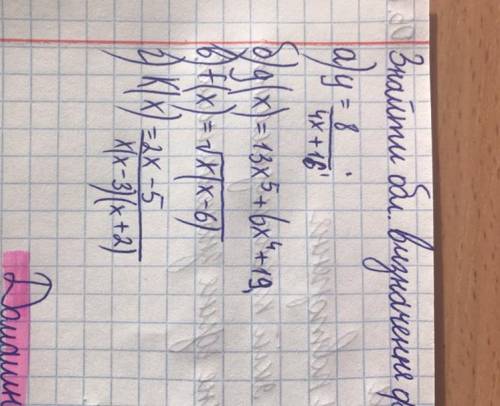 Знайти обл. визначення ф
а) y = 8 / (4x + 16)
б) g(x) = 13x⁵ + 6x⁴ + 19,
в) f(x) = √x(x - 6)
г) K(x) = 2x - 5 / x(x - 3)(x + 2)
Домашн